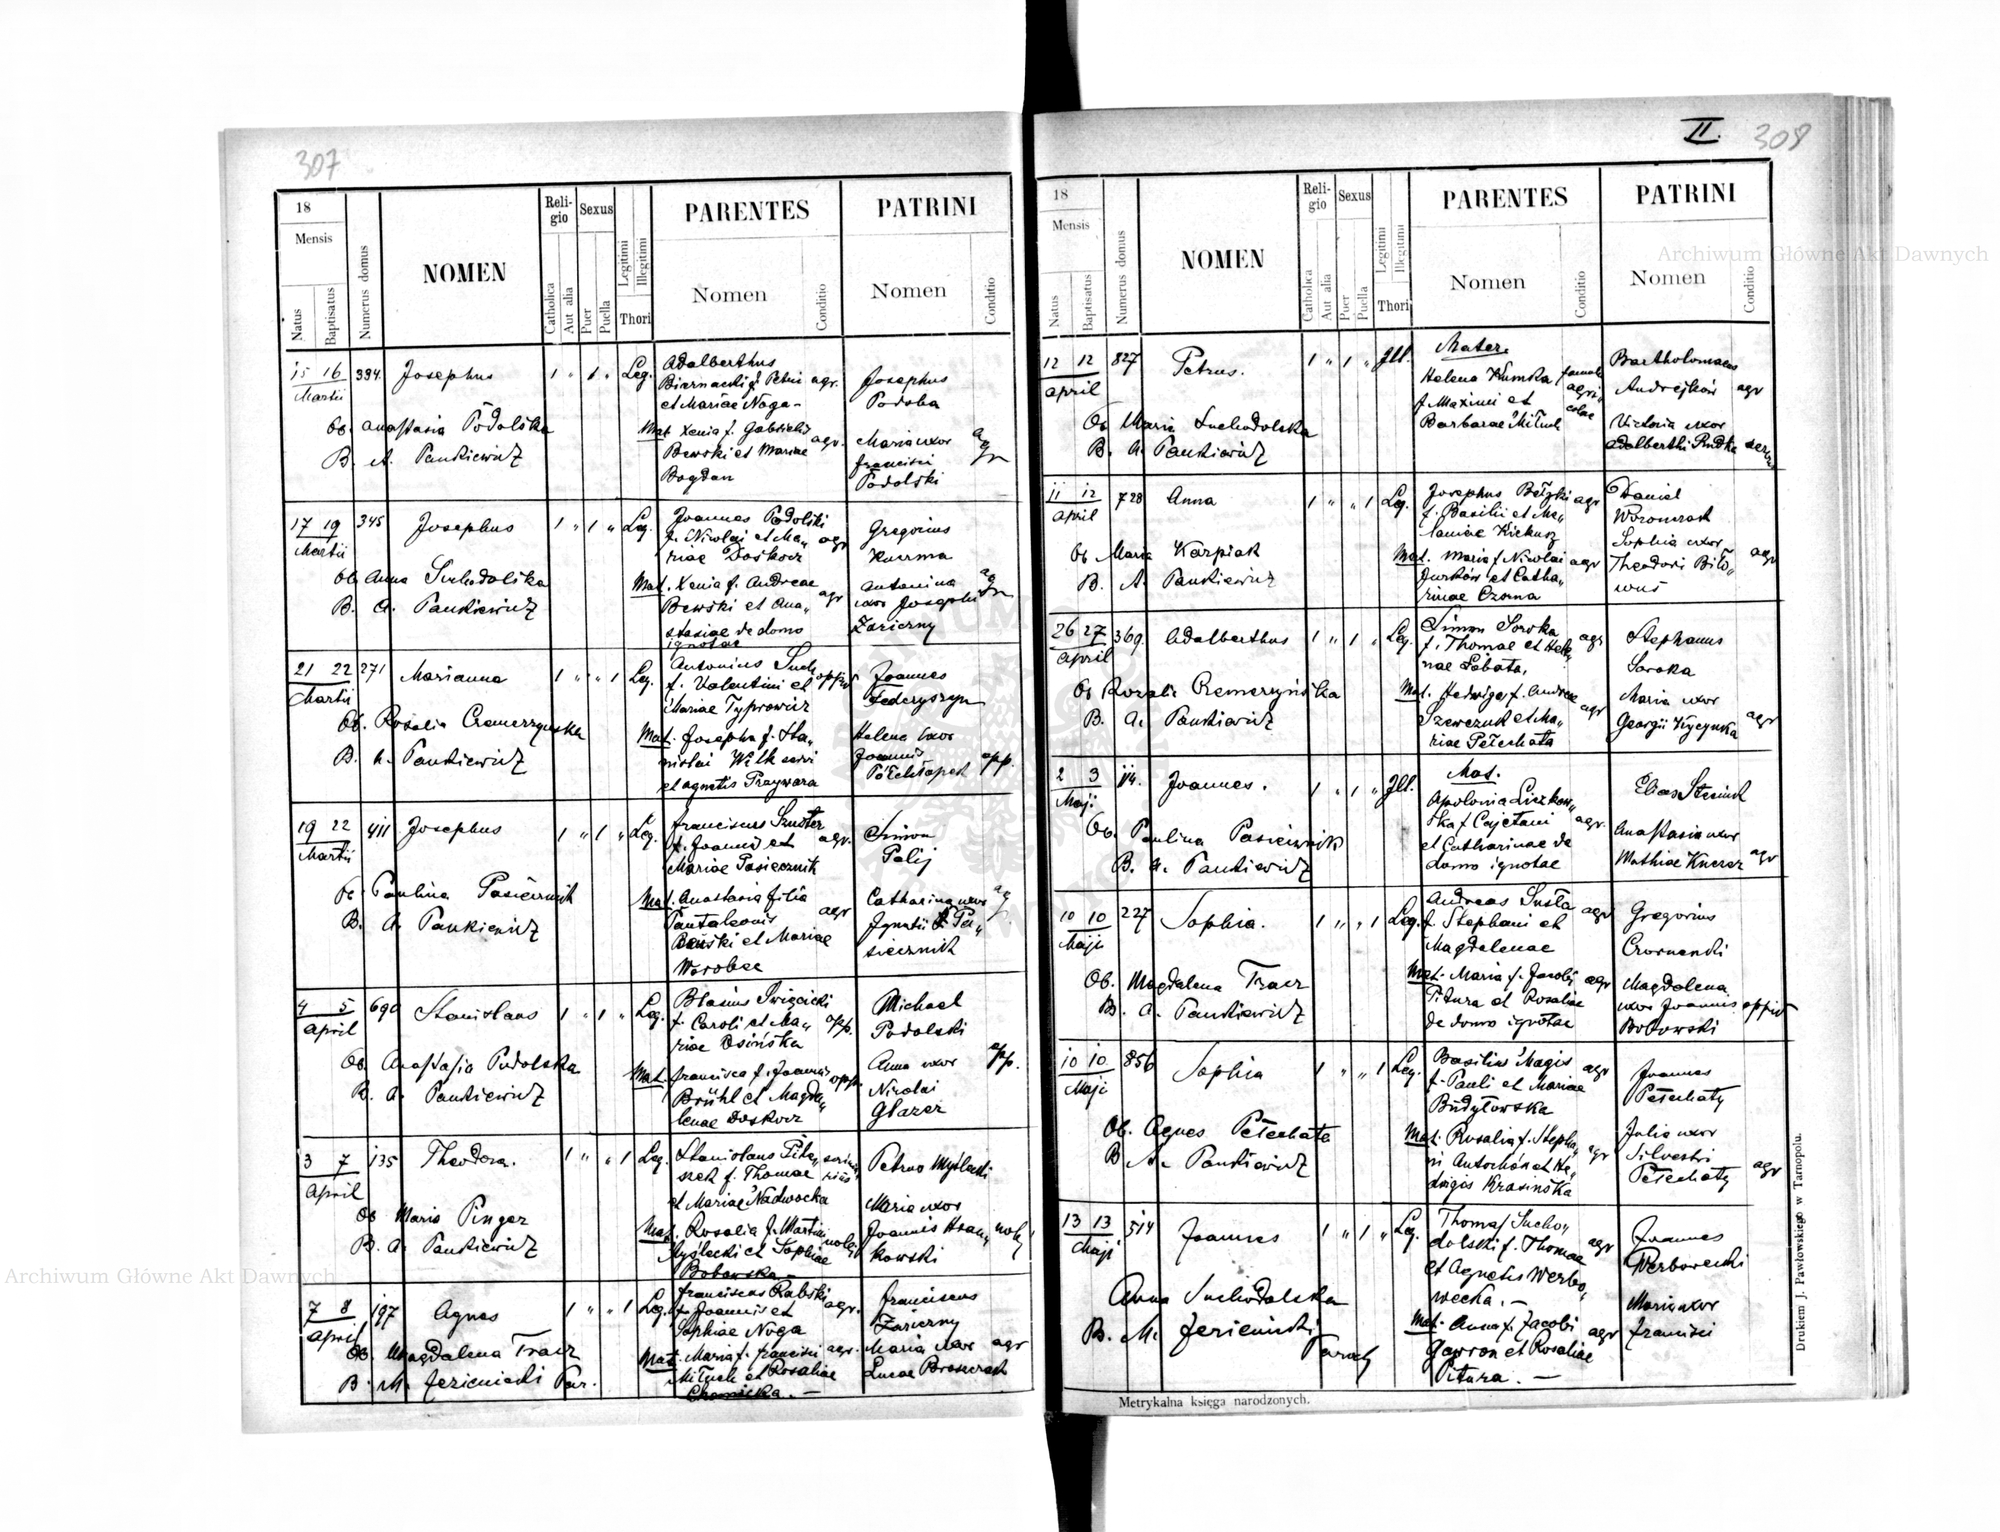 307
18
Mensis
Natus
Baptisatus
Numerus domus
NOMEN
Religio
Catholica
Aut alia
Sexus
Puer
Puella
Legitimi
Illegitimi
Thori
PARENTES
Nomen
Conditio
PATRINI
Nomen
Conditio
15 16 384. Josephus 1 " 1 " Leg.
Martii
Adalberthus
Biernacki f. Petri agr.
et Mariae Noga-
Mat. Xenia f. Gabrielis
Bewski et Mariae agr.
Bogdan
Josephus
Podoba
Maria uxor
Francisci
Podolski
agr
Ob. Anastasia Podolska
B. A. Pankiewicz
17 19 345 Josephus 1 " 1 " Leg.
Martii
Joannes Podolski
f. Nicolai et Ma„ agr
riae Doskocz
Mat. Xenia f. Andreae
Bewski et Ana„ agr
stasiae de domo
ignotae
Gregorius
Kurma
Antonina
uxor Josephi
Zarierny
Ob. Anna Suchodolska
B. A. Pankiewicz
21 22 271 Marianna 1 " " 1 Leg.
Martii
Antonius Such oppid
f. Valentini et
Mariae Typrowicz
Mat. Josepha f. Sta„
nislai Wilk
et Agnetis Przywara
Joannes
Federyszyn
Helena uxor
Joannis
opp.
Ob. Rosalia Czemerzynska
B. A. Pankiewicz
19 22 411 Josephus 1 " 1 " Leg.
Martii
Franciscus Szuster
f. Joannis et agr.
Mariae Pasiecznik
Mat. Anastasia filia
Pantaleonis agr
Bewski et Mariae
Worobec
Simon
Palij
Catharina uxor
Ignatii Pa„
siecznik
Ob. Paulina Pasiecznik
B. A. Pankiewicz
4 5 690 Stanislaus 1 " 1 " Leg.
April
Blasius Swięcicki
f. Caroli et Ma„ opp.
riae Osińska
Mat. Francisca f. Joannis opp.
Brühl et Magda„
lenae Doskocz
Michael
Podolski
Anna uxor opp.
Nicolai
Glazer
Ob. Anastasia Podolska
B. A. Pankiewicz
3 7 135 Theodora. 1 " " 1 Leg.
April
Stanislaus
f. Thomae
et Mariae Nadwocka
Mat. Rosalia f. Martini
Myślecki et Sophiae
Bobowska
Petrus Myślecki
Maria uxor
Joannis
kowski
Ob Maria Pinger
B. A. Pankiewicz
7 8 197 Agnes 1 " " 1 Leg.
April
Franciscus Rabski
f. Joannis et agr.
Sophiae Noga
Mat. Maria f. Francisci agr.
Milnch et Rosaliae
Franciscus
Zarierny
Maria uxor agr
Lucae
Ob. Magdalena Tracz
B. M. Jezienicki Par.
II. 308
18
Mensis
Natus
Baptisatus
Numerus domus
NOMEN
Religio
Catholica
Aut alia
Sexus
Puer
Puella
Legitimi
Illegitimi
Thori
PARENTES
Nomen
Conditio
PATRINI
Nomen
Conditio
12 12 827 Petrus. 1 " 1 " Ill.
April
Mater
Helena Kumka
f. Maximi et
Barbarae Milnch
Bartholomaeus
Andrejków agr
Victoria uxor
Adalberthi Rudka
Ob Maria Suchodolska
B. A. Pankiewicz
11 12 728 Anna 1 " " 1 Leg.
April
Josephus agr
f. Basilii et Me„
laniae Kiekusz
Mat. Maria f. Nicolai agr
Jurków et Catha„
rinae Czorna
Daniel
Sophia uxor
Theodori
agr
Ob Maria Karpiak
B. A. Pankiewicz
26 27 369. Adalberthus 1 " 1 " Leg.
April
Simon Soroka agr
f. Thomae et Hele„
nae Łobata,
Mat. Hedwiga f. Andreae
Szewczuk et Ma„ agr
riae Petechata
Stephanus
Soroka
Maria uxor
Georgii agr
Ob Rozalia Czemerzyńska
B. A. Pankiewicz
2 3 114. Joannes. 1 " 1 " Ill.
Maji
Mat.
Apolonia Liczkow„
ska f. Cajetani agr.
et Catharinae de
domo ignotae
Elias Stecink
Anastasia uxor
Mathiae Kucrez agr
Ob. Paulina Pasiecznik
B. A. Pankiewicz
10 10 227 Sophia. 1 " " 1 Leg.
Maji
Andreas Susła agr
f. Stephani et
Magdalenae
Mat. Maria f. Jacobi agr
Pitura et Rosaliae
de domo ignotae
Gregorius
Magdalena
uxor Joannis oppid
Bobowski
Ob. Magdalena Tracz
B. A. Pankiewicz
10 10 856 Sophia 1 " " 1 Leg.
Maji
Basilius Magis agr
f. Pauli et Mariae
Budyłowska
Mat. Rosalia f. Stepha„
ni Antochów et He„ agr
dvigis Krasińska
Joannes
Petechaty
Julia uxor
Silvestri
Petechaty agr
Ob. Agnes Petechata
B A. Pankiewicz
13 13 514 Joannes 1 " 1 " Leg.
Maji
Thomas Sucho„
dolski f. Thomae agr
et Agnetis Werbo„
wecka. —
Mat. Anna f. Jacobi agr
Gawron et Rosaliae
Pitura. —
Joannes
Werbowecki
Maria uxor
Francisci
Anna Suchodolska
B. M. Jezienicki
Paroch
Metrykalna księga narodzonych.
Drukiem J. Pawłowskiego w Tarnopolu.
Archiwum Główne Akt Dawnych
Archiwum Główne Akt Dawnych